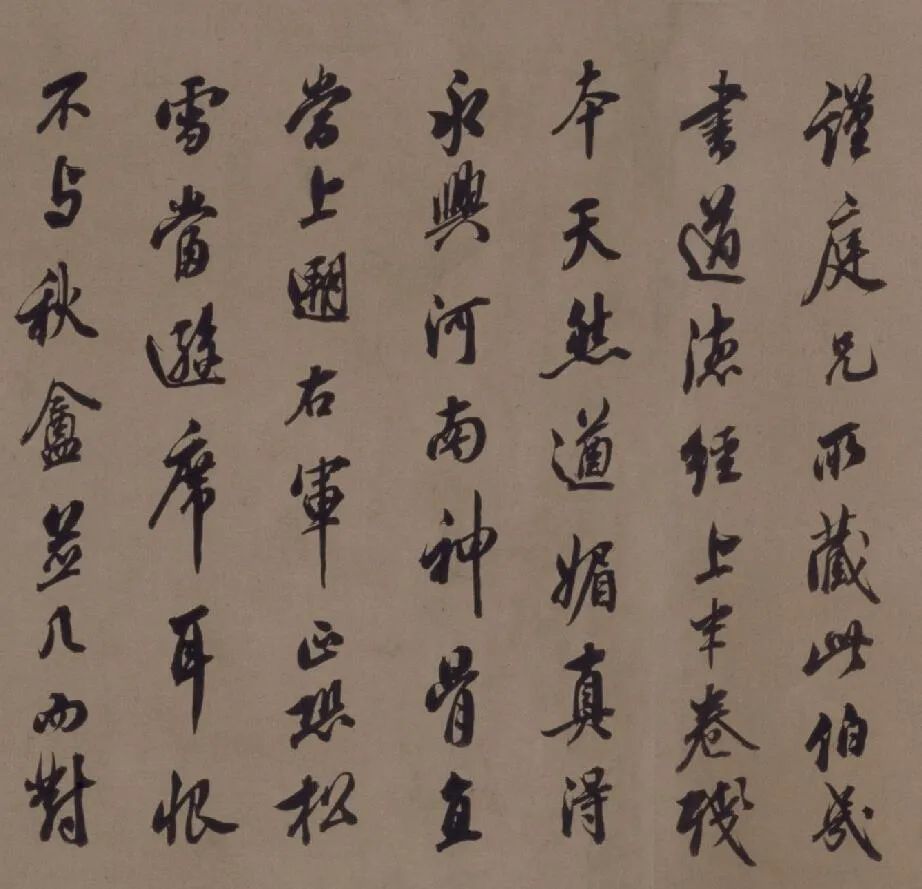 谨庭兄所藏此伯幾
書道德經上半卷殘
本天然遒媚真得
永興河南神骨直
當上闖右軍正恐松
雪當避席耳恨
不与秋盦並几而對